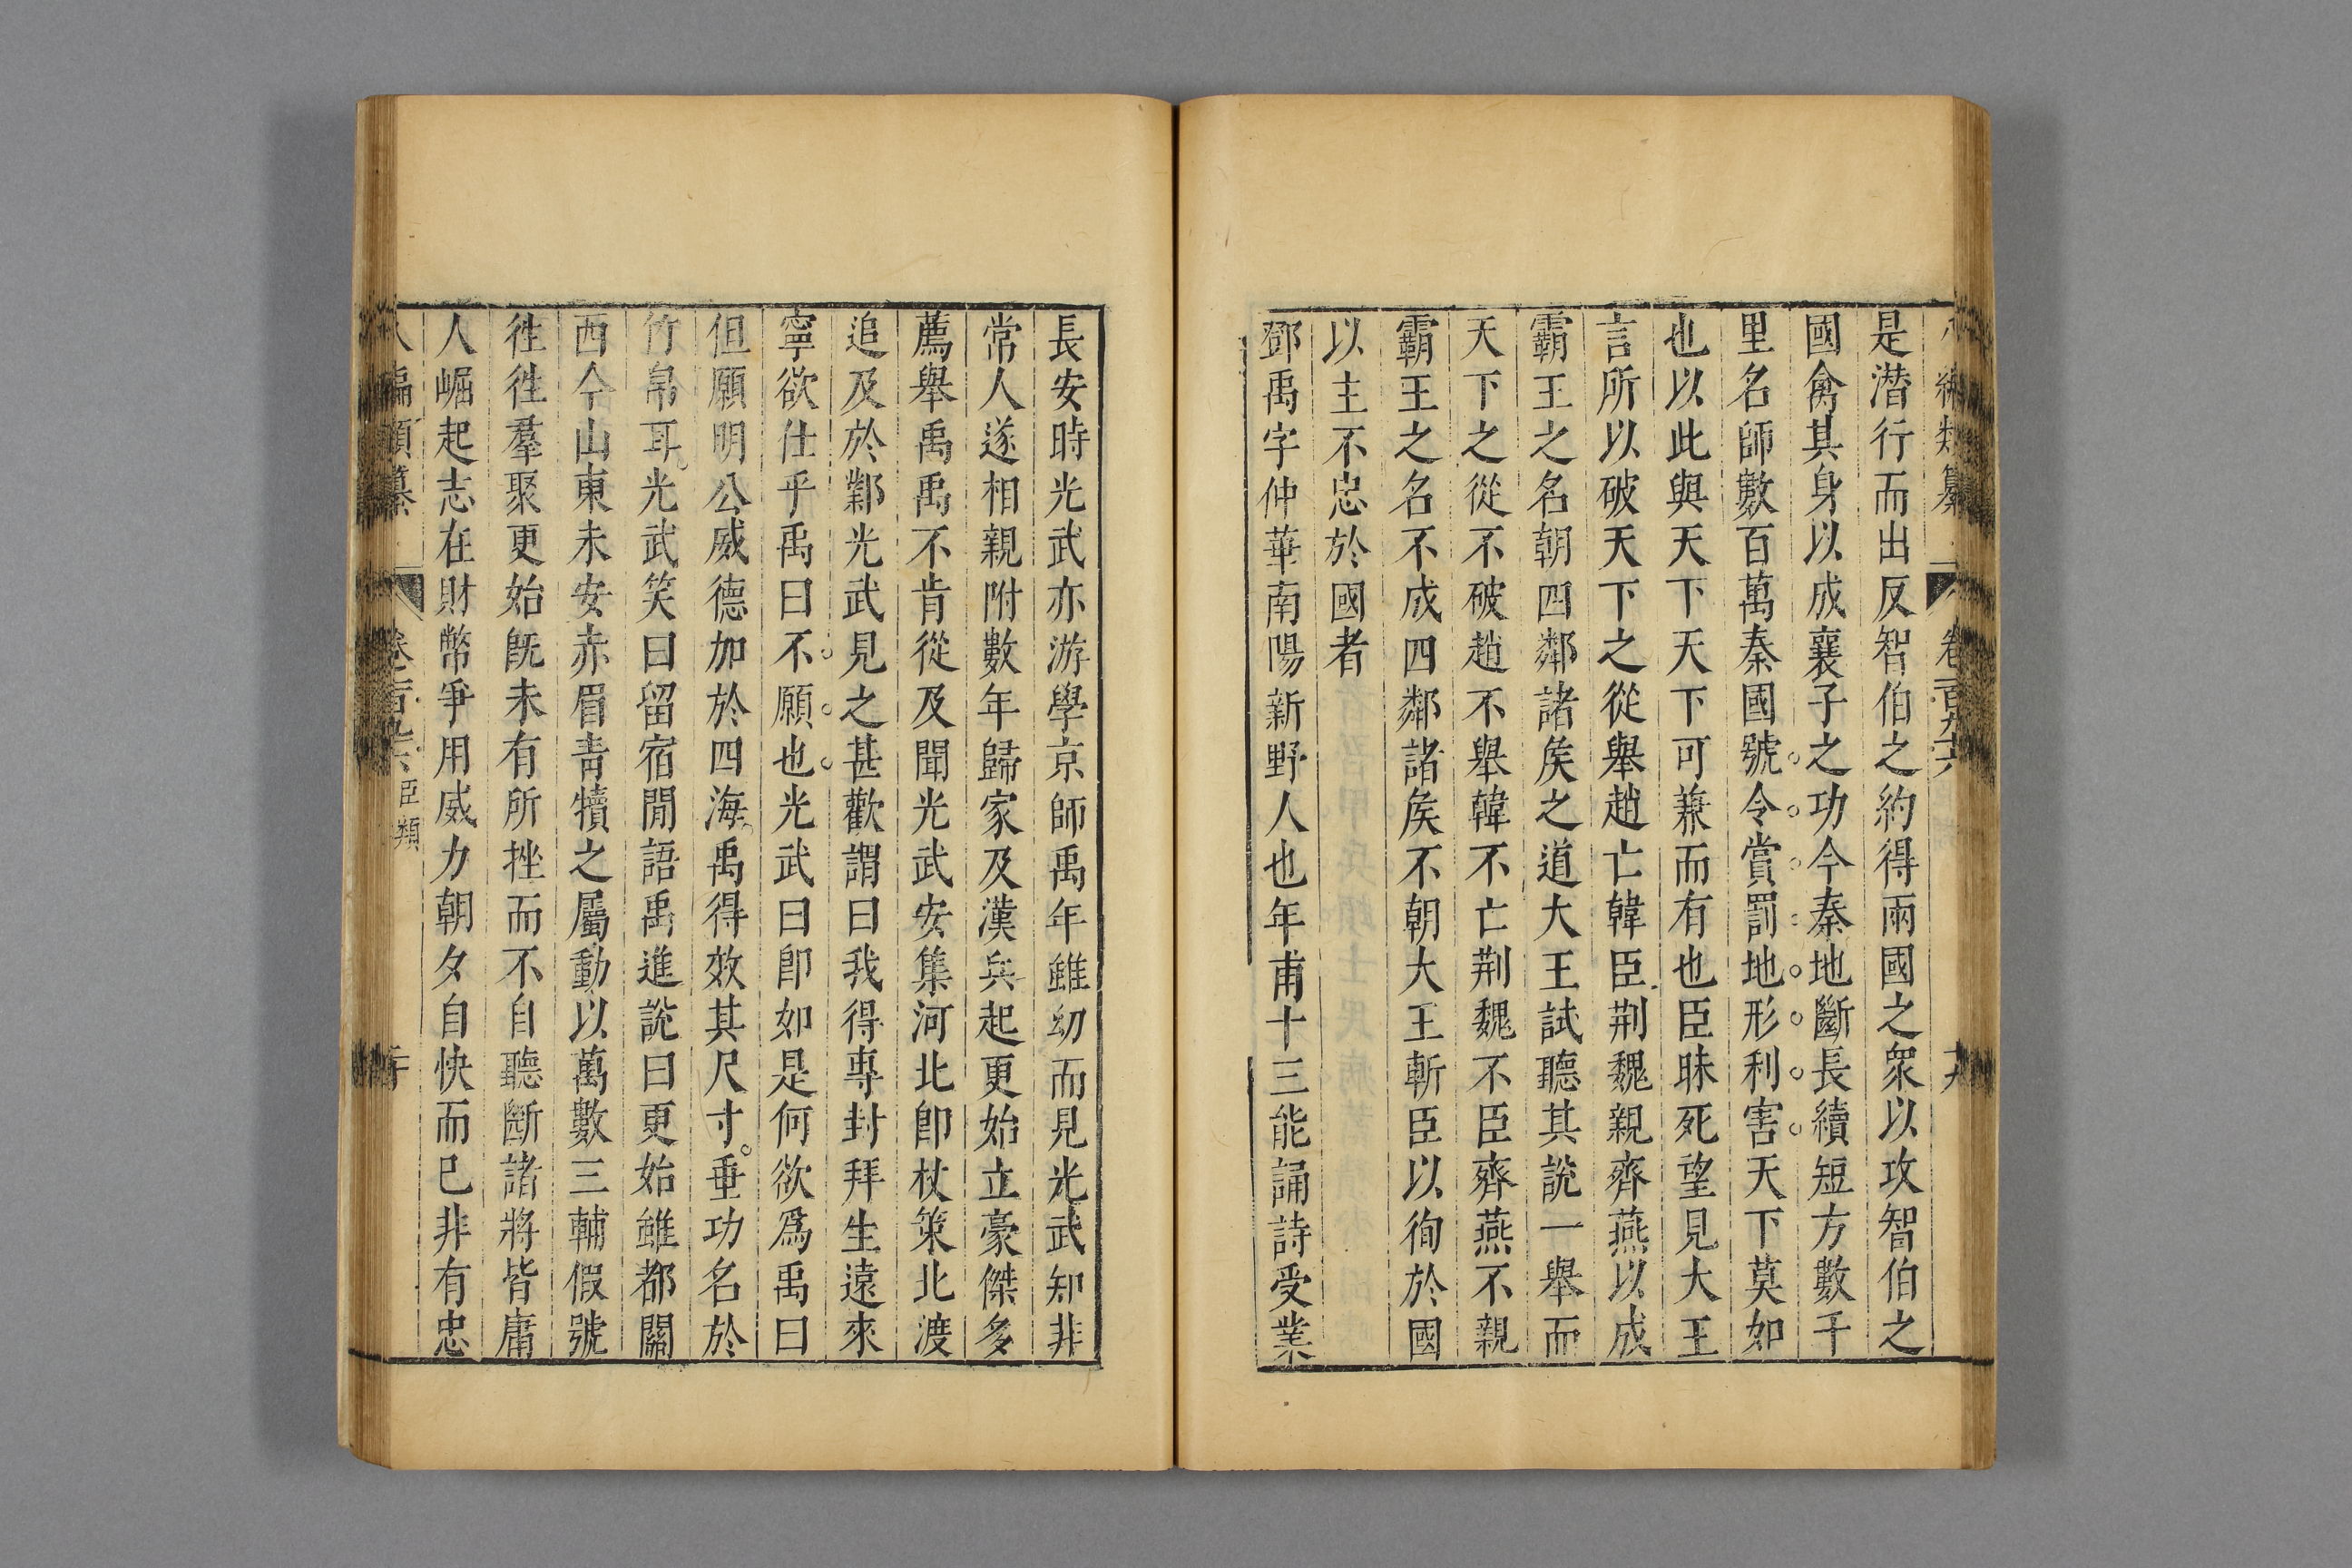 八編類纂 卷一百九十六 十九
是潛行而出反智伯之約得兩國之眾以攻智伯之
國禽其身以成襄子之功今秦地斷長續短方數千
里名師數百萬秦國號令賞罰地形利害天下莫如
也以此與天下天下可兼而有也臣昧死望見大王
言所以破天下之從舉趙亡韓臣荆魏親齊燕以成
霸王之名朝四鄰諸矦之道大王試聽其說一舉而
天下之從不破趙不舉韓不亡荆魏不臣齊燕不親
霸王之名不成四鄰諸矦不朝大王斬臣以徇於國
以主不忠於國者
鄧禹字仲華南陽新野人也年甫十三能誦詩受業
長安時光武亦游學京師禹年雖幼而見光武知非
常人遂相親附數年歸家及漢兵起更始立豪傑多
薦舉禹禹不肯從及聞光武安集河北卽杖策北渡
追及於鄴光武見之甚歡謂曰我得專封拜生遠來
寧欲仕乎禹曰不願也光武曰卽如是何欲爲禹曰
但願明公威德加於四海禹得效其尺寸垂功名於
竹帛耳光武笑曰留宿閒語禹進說曰更始雖都關
西今山東未安赤眉青犢之屬動以萬數三輔假號
徃徃羣聚更始旣未有所挫而不自聽斷諸將皆庸
人崛起志在財幣爭用威力朝夕自快而已非有忠
八編類纂 卷一百九十六 臣類 二十